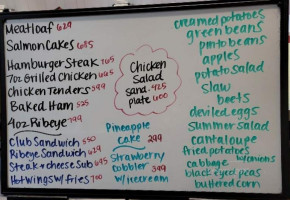 Meatloaf 629
Salmon Cakes 685
Hamburger Steak 765
7oz Grilled Chicken 665
Chicken Tenders 599
Baked Ham 525
4oz Ribeye 799
Club Sandwich 550
Ribeye Sandwich 629
Steak + cheese Sub 695
Hotwings w/ fries 700
Chicken
Salad
sand. 425
plate 600
Pineapple
cake 299
Strawberry
cobbler 399
w/ icecream
creamed potatoes
green beans
pinto beans
apples
potato salad
slaw
beets
deviled eggs
summer salad
cantaloupe
fried potatoes
w/onions
cabbage
black eyed peas
buttered corn